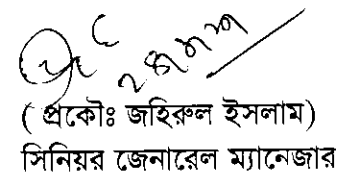 ( প্রকৌঃ জহিরুল ইসলাম)
সিনিয়র জেনারেল ম্যানেজার